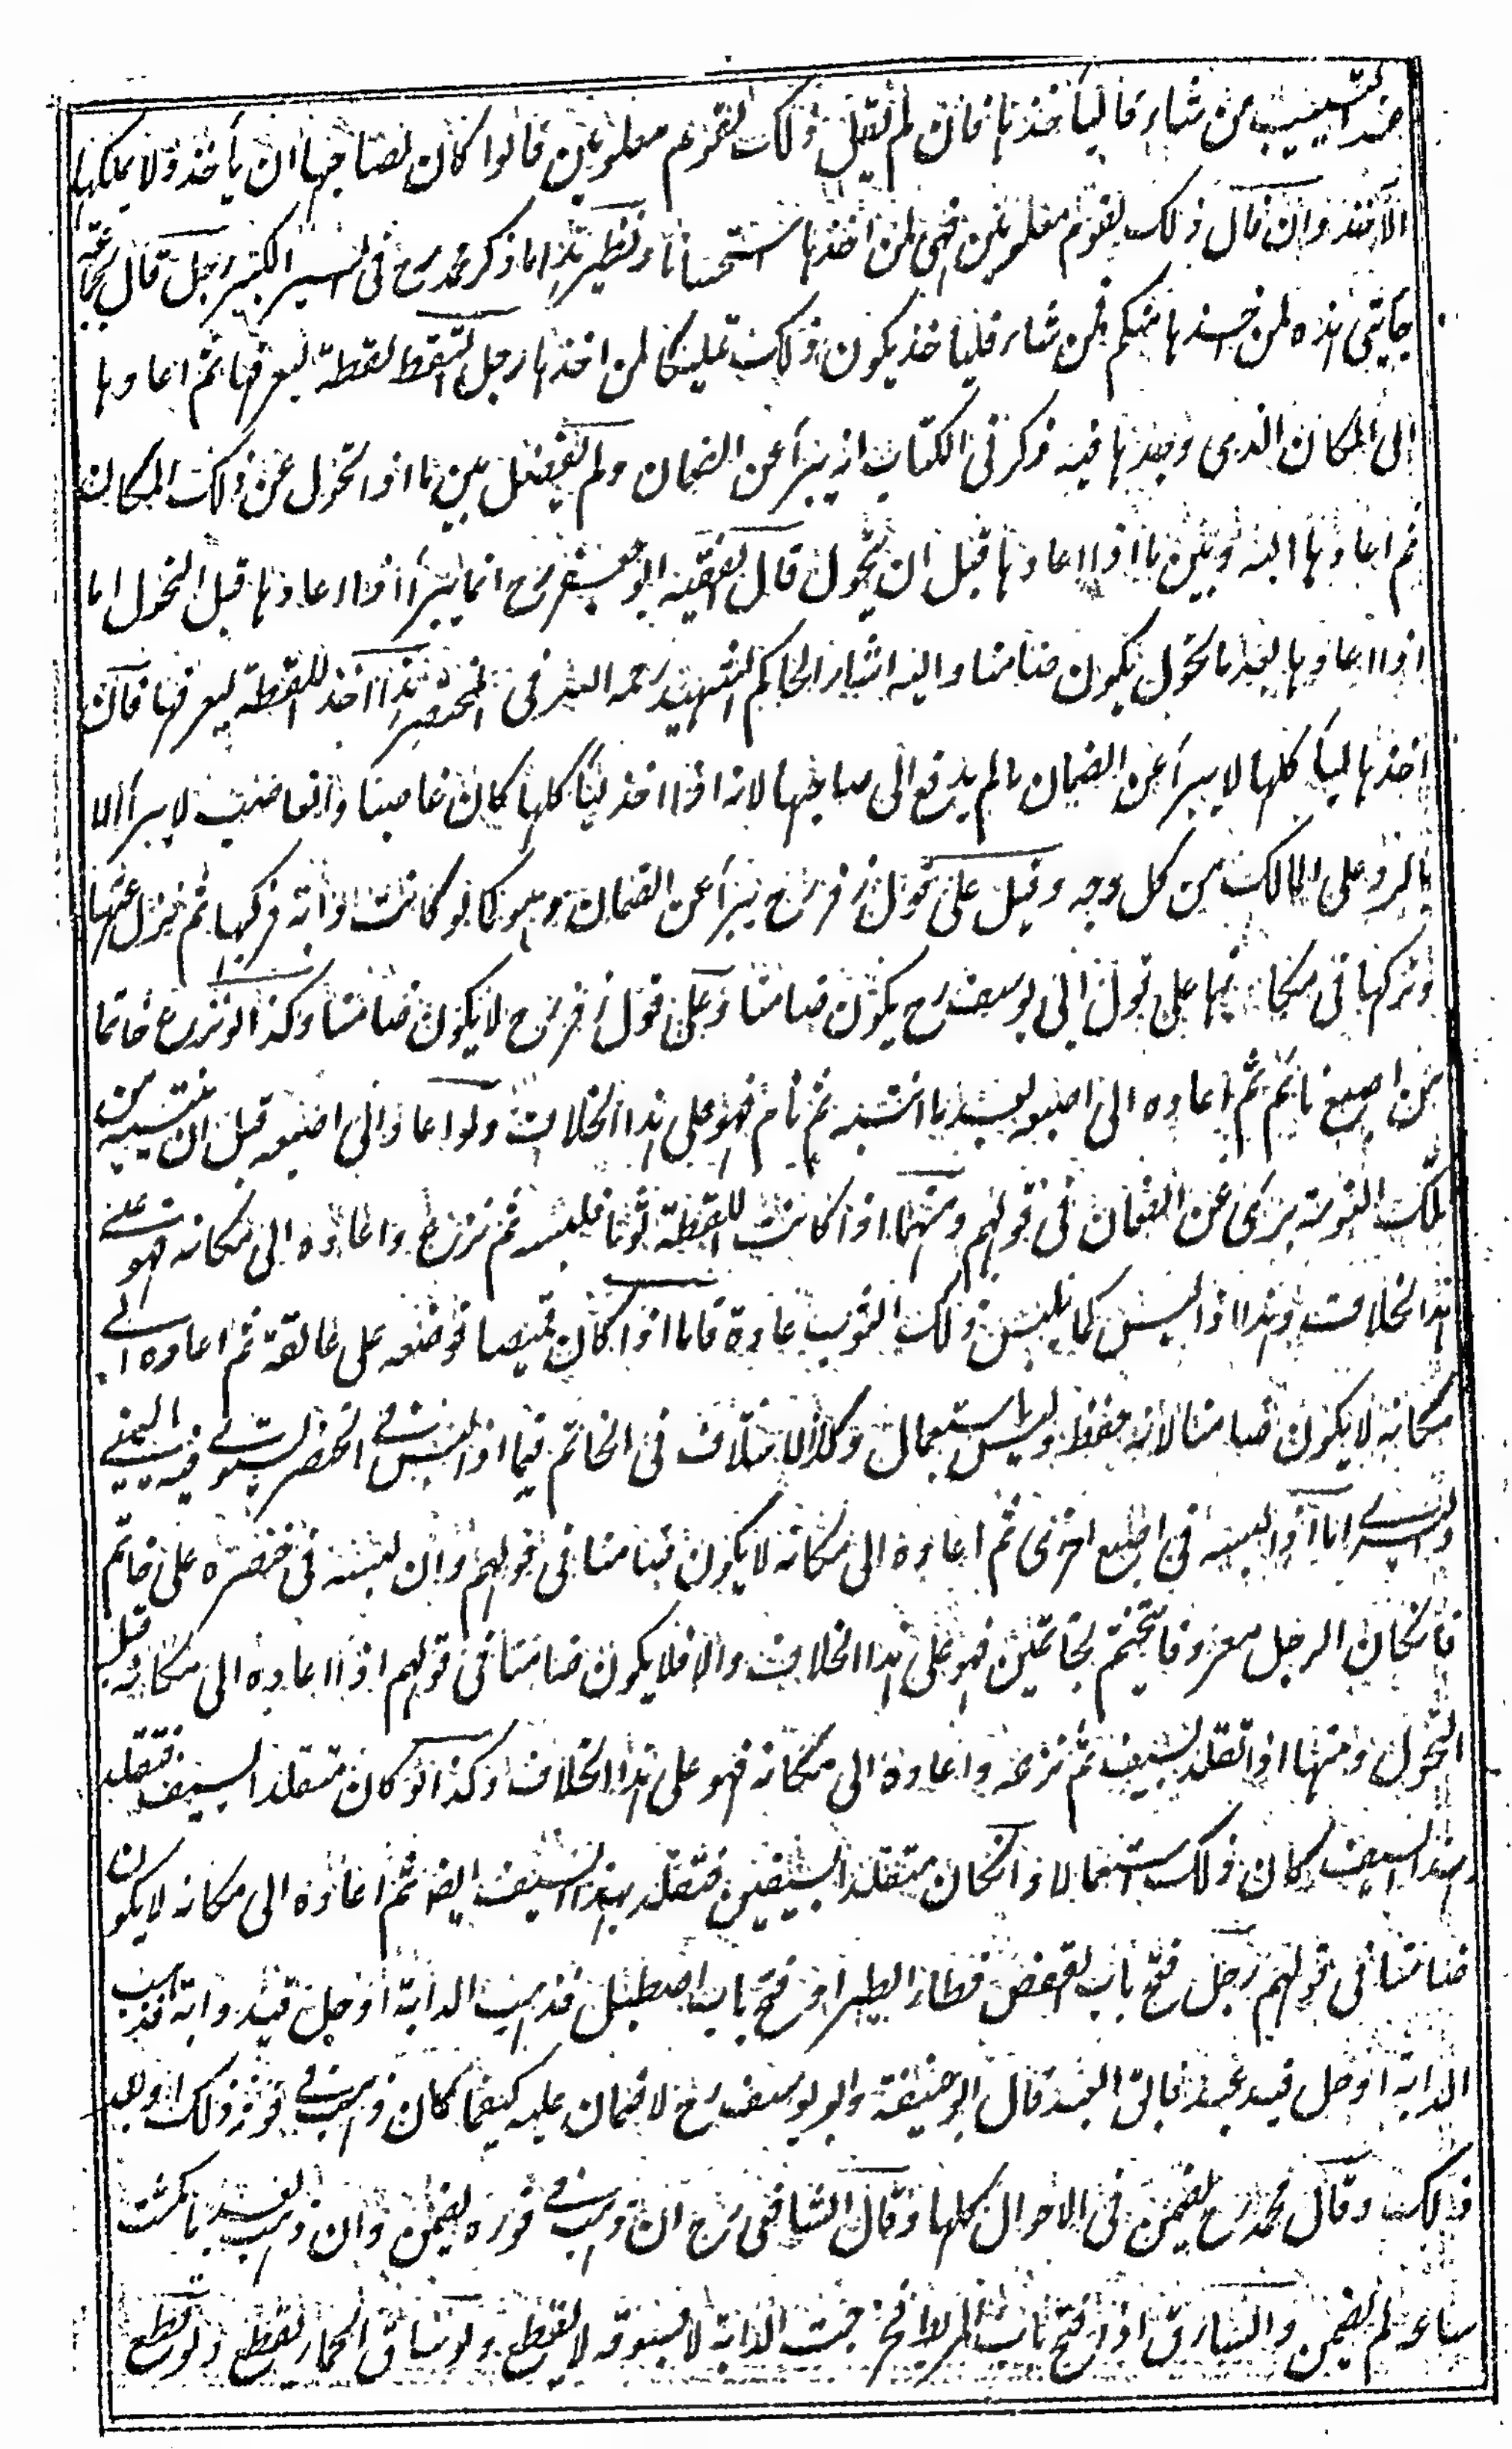 عند التسييب من شاء فاليأخذها فان لم يقل ذلك لقوم معلومين قالوا كان لصاحبها ان يأخذ ولا يملكها
الآخذ وان قال ذلك لقوم معلومين فهى لمن اخذها استحسانا ونظير هذا ما ذكر محمد رح فى السير الكبير رجل قال لجماعة
جايتى هذه لمن اخذها منكم فمن شاء فليأخذ يكون ذلك تمليكا لمن اخذها رجل التقط لقطة ليعرفها ثم اعادها
الى المكان الذى وجدها فيه ذكر فى الكتاب انه يبرأ عن الضمان ولم يفصل بين ما اذا تحول عن ذلك المكان
ثم اعادها اليه وبين ما اذا اعادها قبل ان يتحول قال الفقيه ابو جعفر رح انما يبرأ اذا اعادها قبل التحول اما
اذا اعادها بعد ما تحول يكون ضامنا واليه اشار الحاكم الشهيد رحمه الله فى المختصر هذا اذا اخذ اللقطة ليعرفها فان
اخذها ليأكلها لا يبرأ عن الضمان ما لم يدفع الى صاحبها لانه اذا اخذ ليأكلها كان غاصبا والغاصب لا يبرأ الا
بالرد على المالك من كل وجه وقيل على قول زفر رح يبرأ عن الضمان وهو كما لو كانت دابة فركبها ثم نزل عنها
وتركها فى مكانها على قول ابى يوسف رح يكون ضامنا وعلى قول زفر رح لا يكون ضامنا وكذا لو نزع خاتما
من اصبع نائم ثم اعاده الى اصبعه بعد ما انتبه ثم نام فهو على هذا الخلاف ولو اعاد الى اصبعه قبل ان ينتبه من
تلك النومة برئ عن الضمان فى قولهم ومنها اذا كانت اللقطة ثوبا فلبسه ثم نزع واعاده الى مكانه فهو على
هذا الخلاف وهذا اذا لبس كما يلبس ذلك الثوب عادة فاما اذا كان قميصا فوضعه على عاتقه ثم اعاده الى
مكانه لا يكون ضامنا لانه حفظ وليس باستعمال وكذا الاختلاف فى الخاتم فيما اذا لبس فى الخنصر يستوى فيه اليمنى
واليسرى اما اذا لبسه فى اصبع اخرى ثم اعاده الى مكانه لا يكون ضامنا فى قولهم وان لبسه فى خنصره على خاتم
فانكان الرجل معروفا يتختم بخاتمين فهو على هذا الخلاف والا فلا يكون ضامنا فى قولهم اذا اعاده الى مكانه قبل
التحول ومنها اذا تقلد بسيف ثم نزعه واعاده الى مكانه فهو على هذا الخلاف وكذا لو كان متقلدا لسيف فتقلد
بهذا السيف كان ذلك استعمالا وانكان متقلدا بسيفين فتقلد بهذا السيف ايضا ثم اعاده الى مكانه لا يكون
ضامنا فى قولهم رجل فتح باب القفص فطار الطير او فتح باب اصطبل فذهب الدابة او حل قيد دابة فذهب
الدابة او حل قيد عبد فابق العبد قال ابو حنيفة وابو يوسف رح لا ضمان عليه كيفما كان ذهب فى فوره ذلك او بعد
ذلك وقال محمد رح يضمن فى الاحوال كلها وقال الشافعى رح ان ذهب فى فوره يضمن وان ذهب بعد ما مكث
ساعة لم يضمن والسارق اذا فتح باب المربط فخرجت الدابة لا بسوقه لا يقطع ولو ساق الحمار يقطع ولو قطع